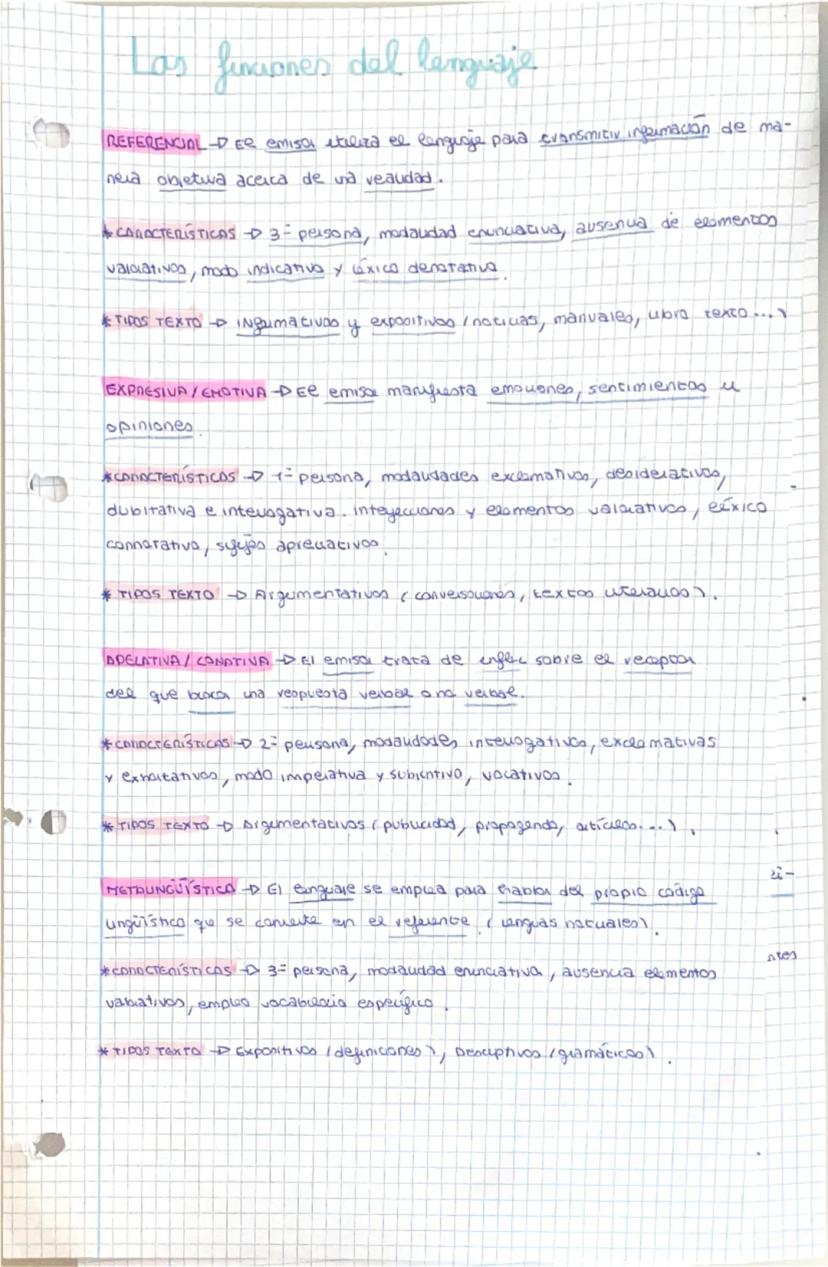 Las funciones del lenguaje
REFERENCIAL → El emisor utiliza el lenguaje para transmitir información de ma-
nera objetiva acerca de una realidad.
* CARACTERÍSTICAS → 3ª persona, modalidad enunciativa, ausencia de elementos
valorativos, modo indicativo y léxico denotativo.
* TIPOS TEXTO → Informativos y expositivos (noticias, manuales, libro texto...)
EXPRESIVA / EMOTIVA → El emisor manifiesta emociones, sentimientos u
opiniones.
* CARACTERÍSTICAS → 1ª persona, modalidades exclamativas, desiderativas,
dubitativa e interrogativa. interjecciones y elementos valorativos, léxico
connotativo, sufijos apreciativos.
* TIPOS TEXTO → Argumentativos (conversaciones, textos literarios).
APELATIVA / CONATIVA → El emisor trata de influir sobre el receptor
del que busca una respuesta verbal o no verbal.
* CARACTERÍSTICAS → 2ª persona, modalidades interrogativas, exclamativas
y exhortativas, modo imperativo y subjuntivo, vocativos.
* TIPOS TEXTO → Argumentativos (publicidad, propaganda, artículos...).
METALINGÜÍSTICA → El lenguaje se emplea para hablar del propio código
lingüístico que se convierte en el referente. (lenguas naturales).
* CARACTERÍSTICAS → 3ª persona, modalidad enunciativa, ausencia elementos
valorativos, empleo vocabulario específico.
* TIPOS TEXTO → Expositivos (definiciones), Descriptivos (gramáticas).